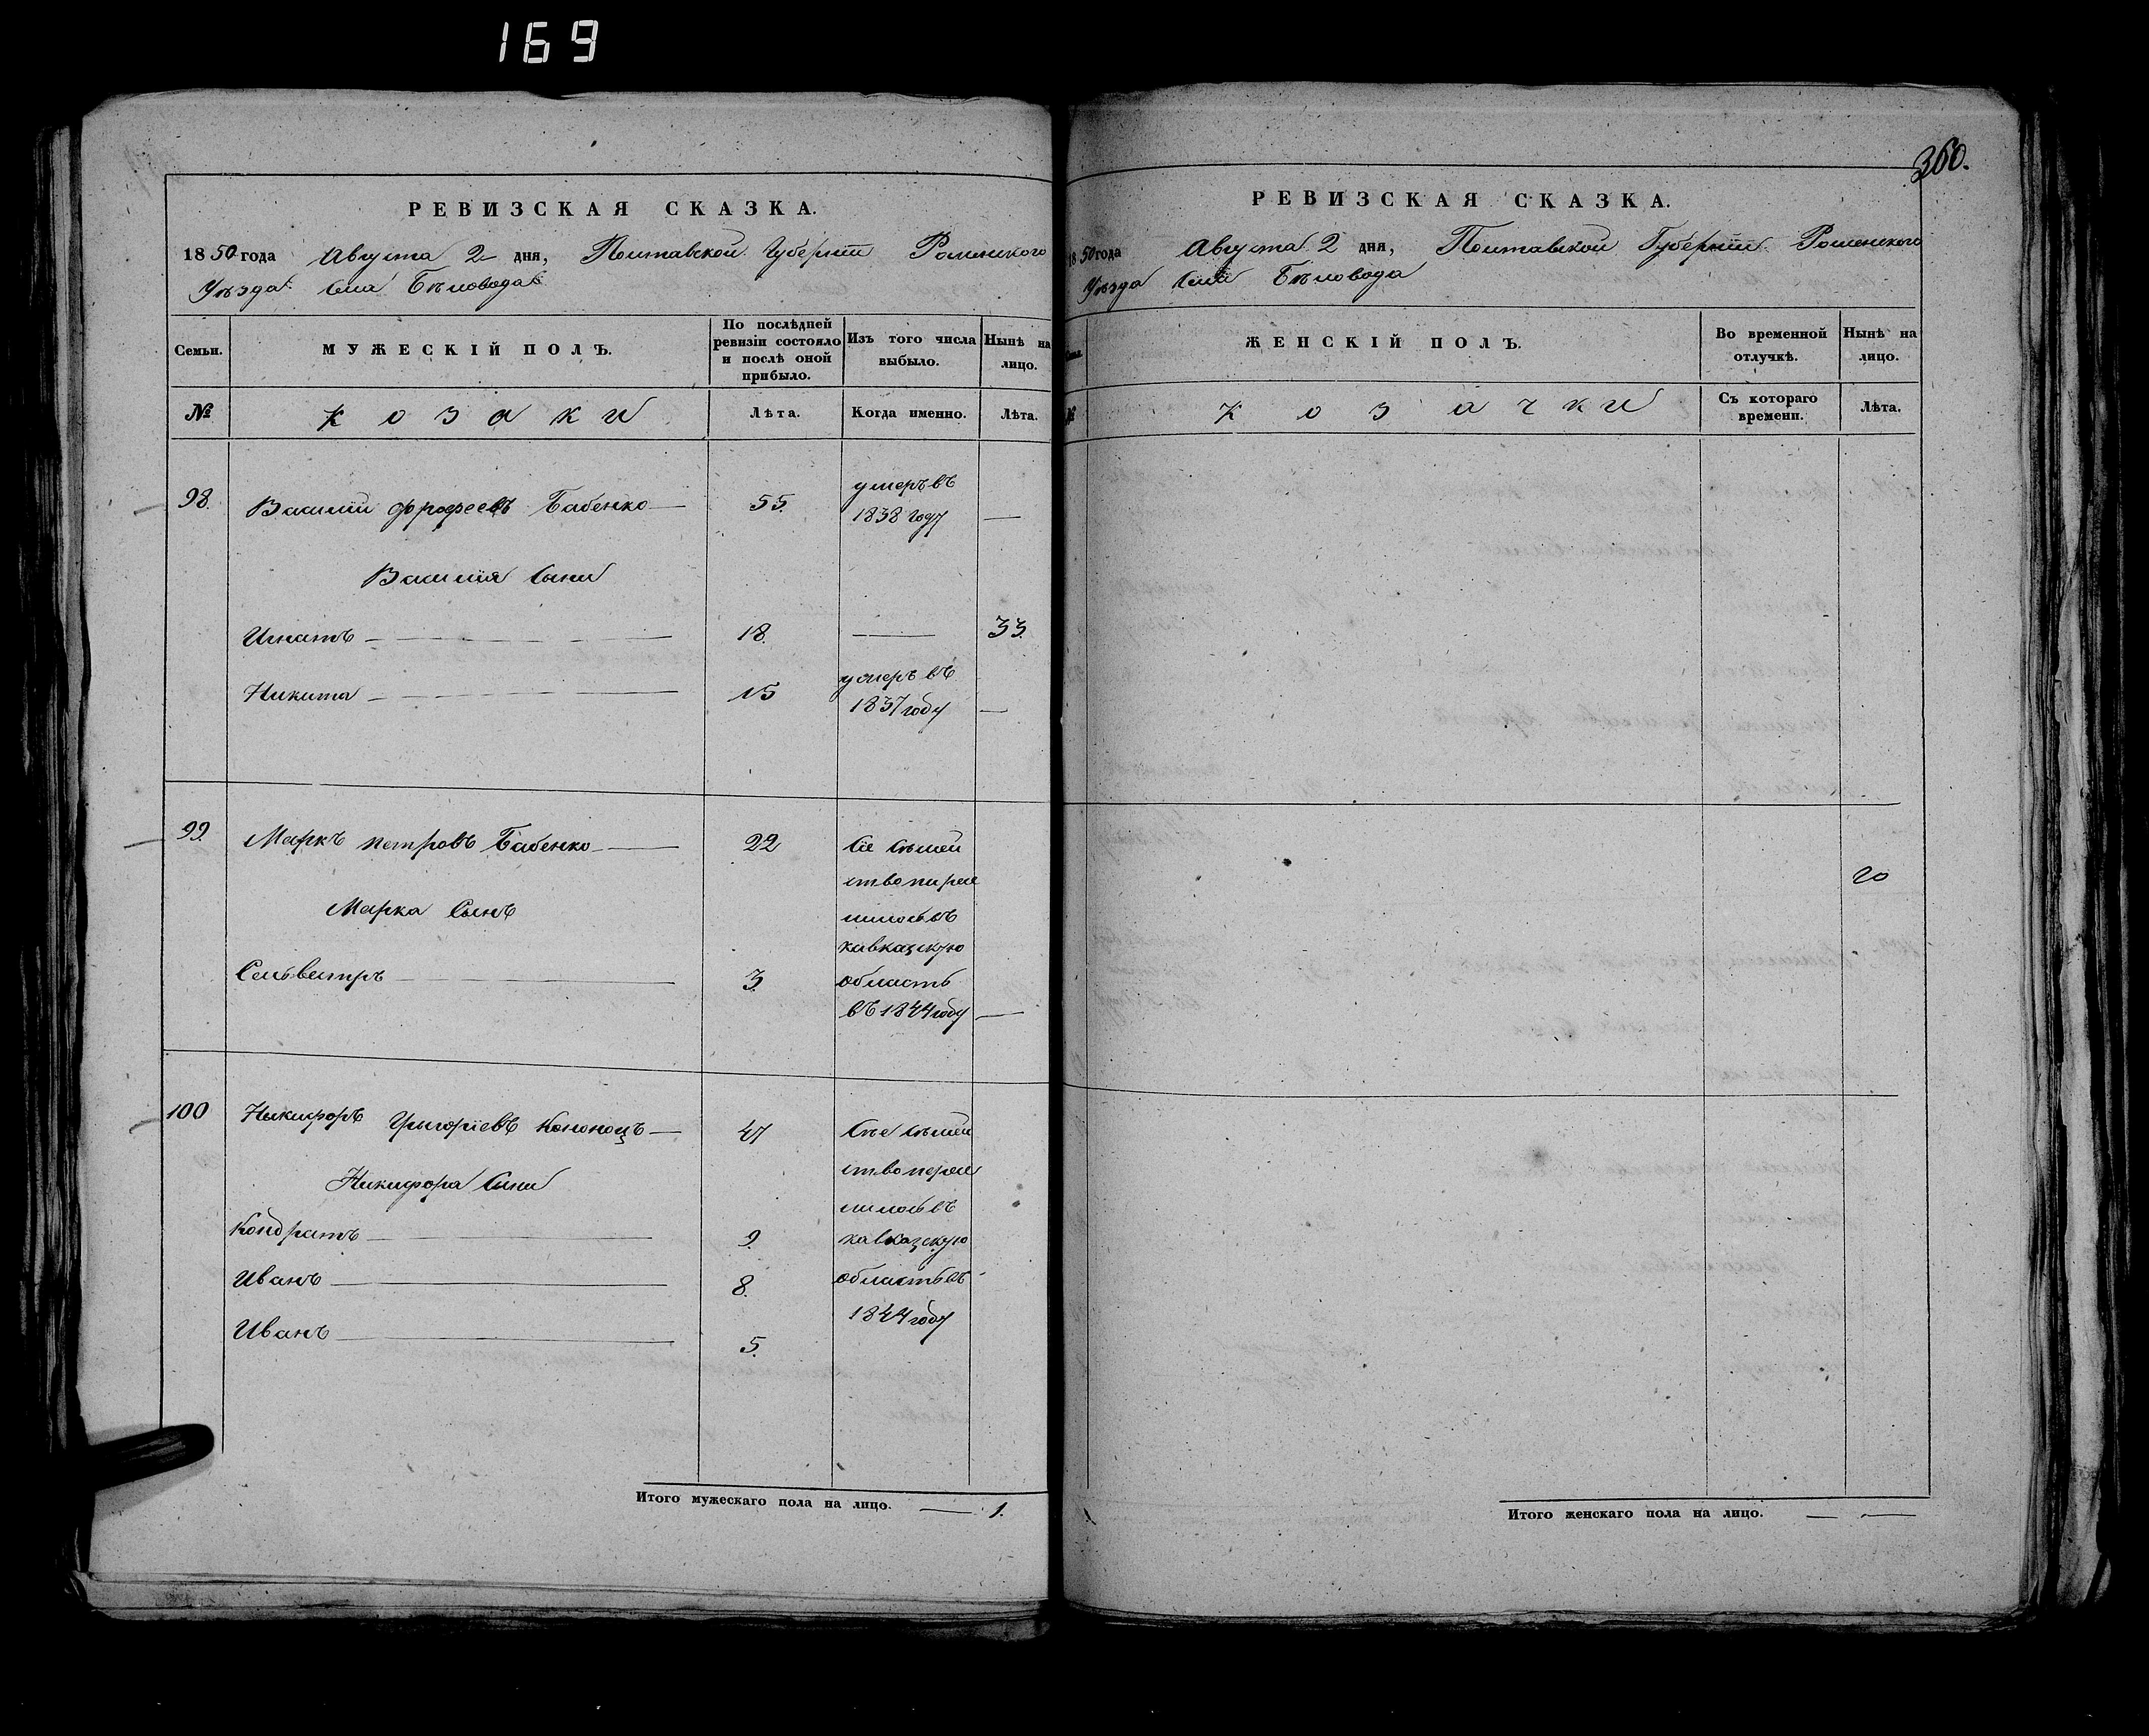 169
РЕВИЗСКАЯ СКАЗКА.
1850 года Августа 2 дня, Полтавской Губерніи Роменского
Уѣзда Села Бѣловода
Семьи.
МУЖЕСКІЙ ПОЛЪ.
По послѣдней ревизіи состояло и послѣ оной прибыло.
Изъ того числа выбыло.
Нынѣ на лицо.
№
Козаки
Лѣта.
Когда именно.
Лѣта.
98. Василій Ѳрофеевъ Бабенко 55. умеръ въ
1838 году —
Василія Сыни
Игнатъ 18. — 33.
Никита 15 умеръ въ
1837 году —
99. Маркъ Петровъ Бабенко 22 Сіе Сѣмей
ство пере
Марка Сынъ
шлось въ
кавказскую
Сельвестръ 3. область
въ 1844 году —
100 Никифоръ Григоріевъ Кононецъ 47 Сіе Сѣмей
ство пере
Никифора Сыни
шлось въ
Кондратъ 9. кавказскую
Иванъ 8. область въ
1844 году
Иванъ 5.
Итого мужескаго пола на лицо. — 1.
360.
РЕВИЗСКАЯ СКАЗКА.
1850 года Августа 2 дня, Полтавской Губерніи Роменского
Уѣзда Села Бѣловода
ЖЕНСКІЙ ПОЛЪ.
Во временной отлучкѣ.
Нынѣ на лицо.
№
Козачки
Съ котораго времени.
Лѣта.
20
Итого женскаго пола на лицо. — —